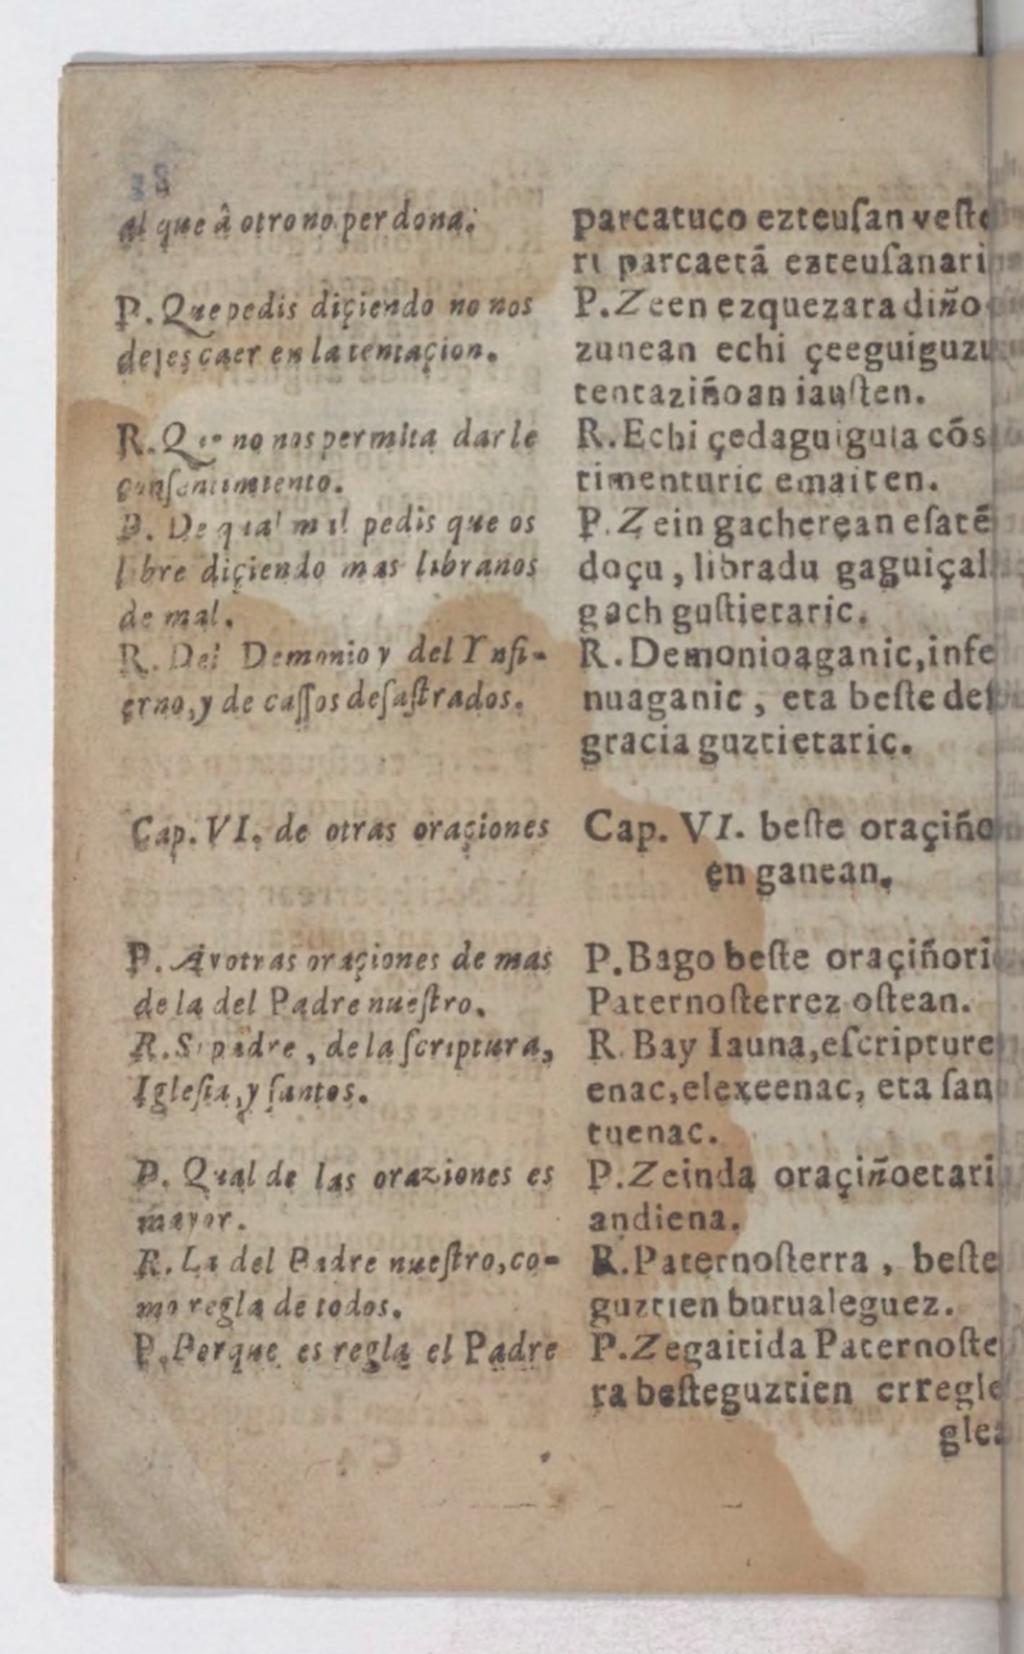 al que â otro no perdona.
P. Que pedis diçiendo no nos
dejes caer en la tentaçion.
R. Que no nos permita darle
consentimiento.
P. De qual mal pedis que os
libre diçiendo mas libranos
de mal.
R. Del Demonio y del Ynfi-
erno, y de caſſos deſaſtrados.
Cap. VI. de otras oraçiones
P. Ay otras oraçiones de mas
de la del Padre nueſtro.
R. Si padre, de la ſcriptura,
Igleſia, y ſantos.
P. Qual de las oraziones es
mayor.
R. La del Padre nueſtro, co-
mo regla de todos.
P. Porque es regla el Padre
parcatuco ezteuſan veſte
ri parcaetã ezteuſanari
P. Zeen ezquezara diño
zunean echi çeeguiguzu
tentaziñoan iauſten.
R. Echi çedaguigula cõs
timenturic emaiten.
P. Zein gacherean eſatẽ
doçu, libradu gaguiçal
gach guſtietaric.
R. Demonioaganic, infe
nuaganic, eta beſte deſ
gracia guztietaric.
Cap. VI. beſte oraçiño
en ganean.
P. Bago beſte oraçiñori
Paternoſterrez oſtean.
R. Bay Iauna, eſcripture
enac, elexeenac, eta ſan
tuenac.
P. Zeinda oraçiñoetari
andiena.
R. Paternoſterra, beſte
guztien burualeguez.
P. Zegaitida Paternoſte
ra beſteguztien erregle
glea